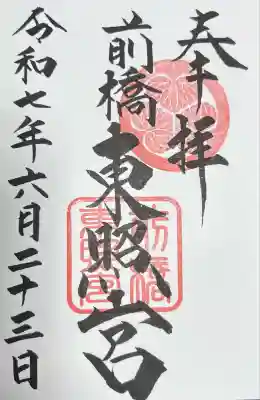 奉拝
前橋東照宮
令和七年六月二十三日
前橋東照宮